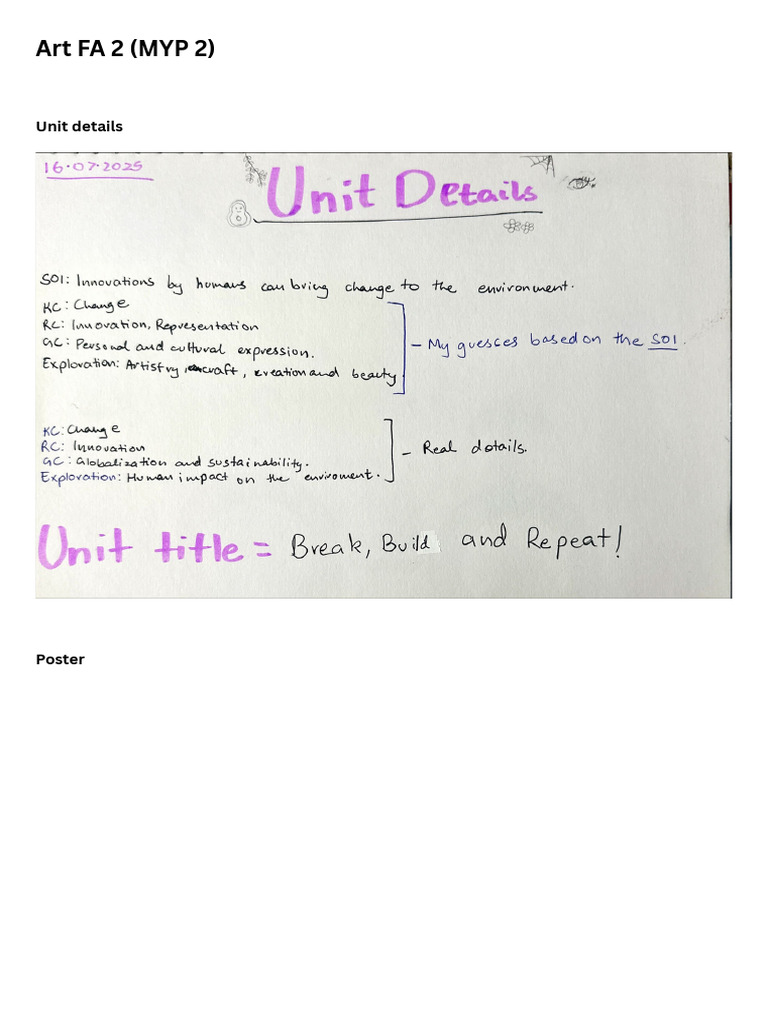 Art FA 2 (MYP 2)
Unit details
16.07.2025
Unit Details
SOI: Innovations by humans can bring change to the environment.
KC: Change
RC: Innovation, Representation
GC: Personal and cultural expression.
Exploration: Artistry, craft, creation and beauty
- My guesces based on the SOI.
KC: Change
RC: Innovation
GC: Globalization and sustainability.
Exploration: Human impact on the enviroment.
- Real details.
Unit title = Break, Build and Repeat!
Poster